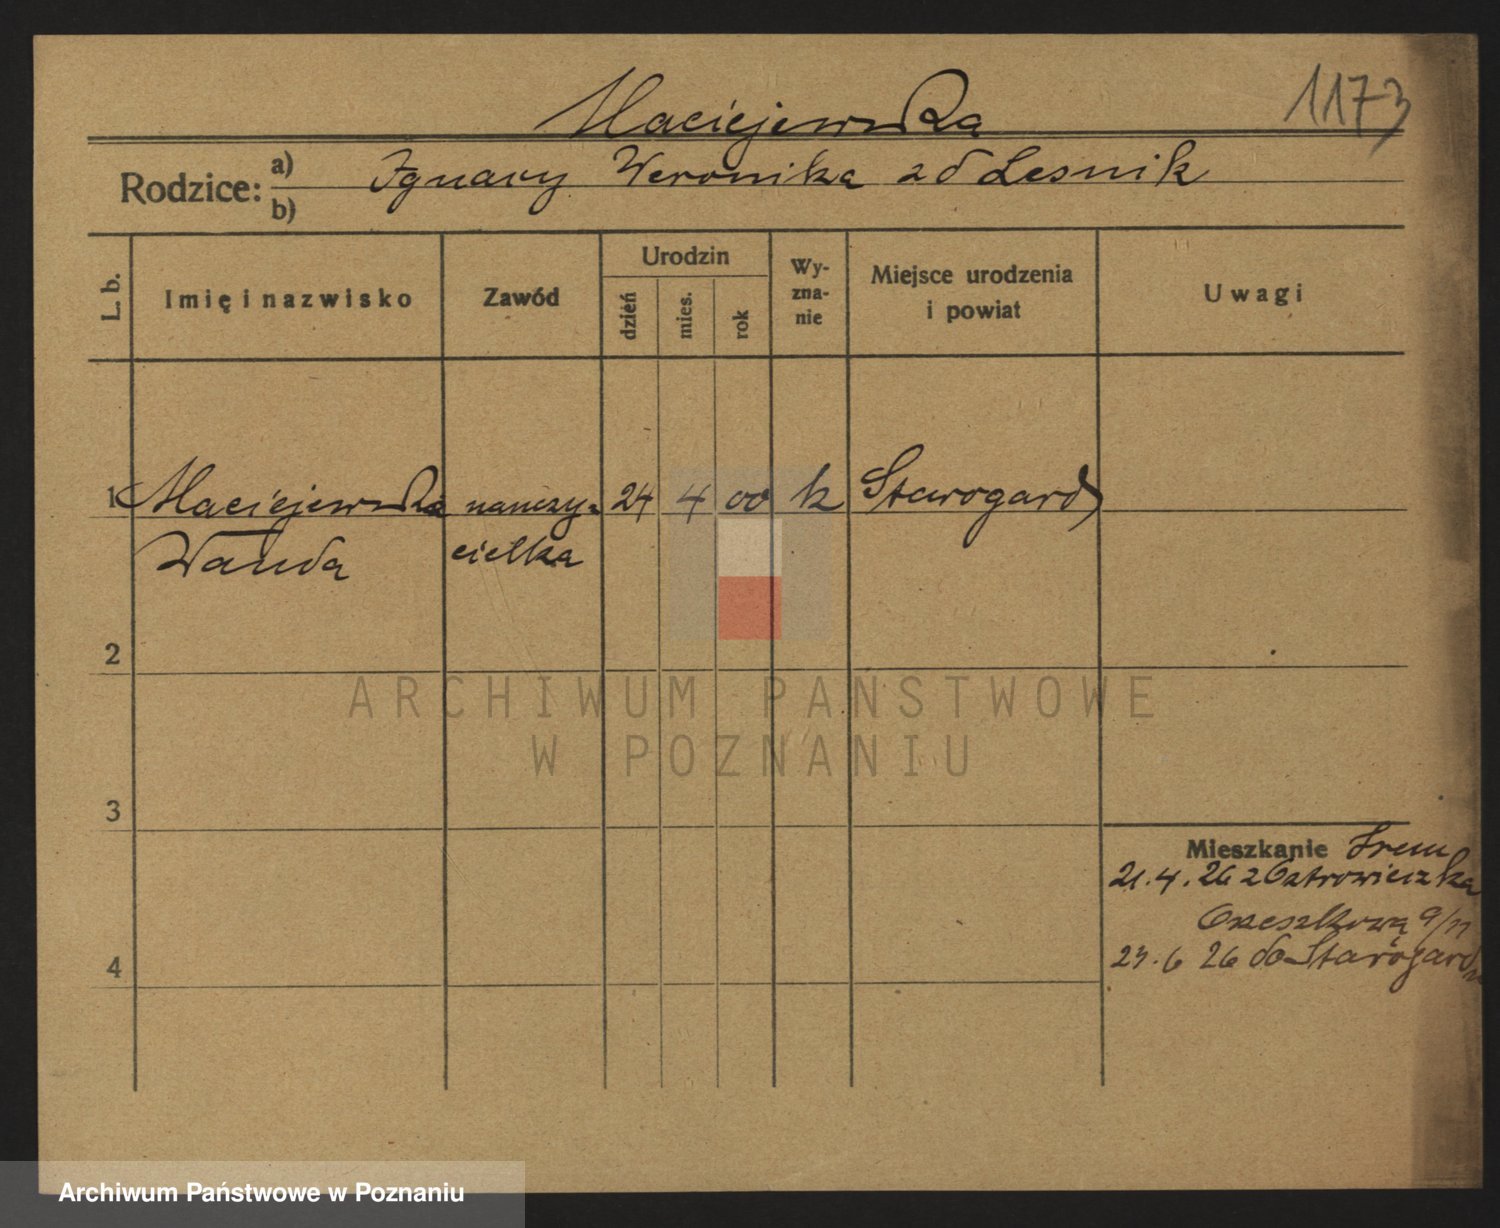 Maciejewska
1173
Rodzice: a) Ignacy Weronika zd Lesnik
b)
L. b.
Imię i nazwisko
Zawód
Urodzin
dzień
mies.
rok
Wy-
zna-
nie
Miejsce urodzenia
i powiat
Uwagi
1 Maciejewska nauczy- 24 4 00 k Starogard
Wanda cielka
2
ARCHIWUM PAŃSTWOWE
W POZNANIU
3
Mieszkanie Srem
21.4.26 z
9/11
23.6 26 do Starogard
4
Archiwum Państwowe w Poznaniu